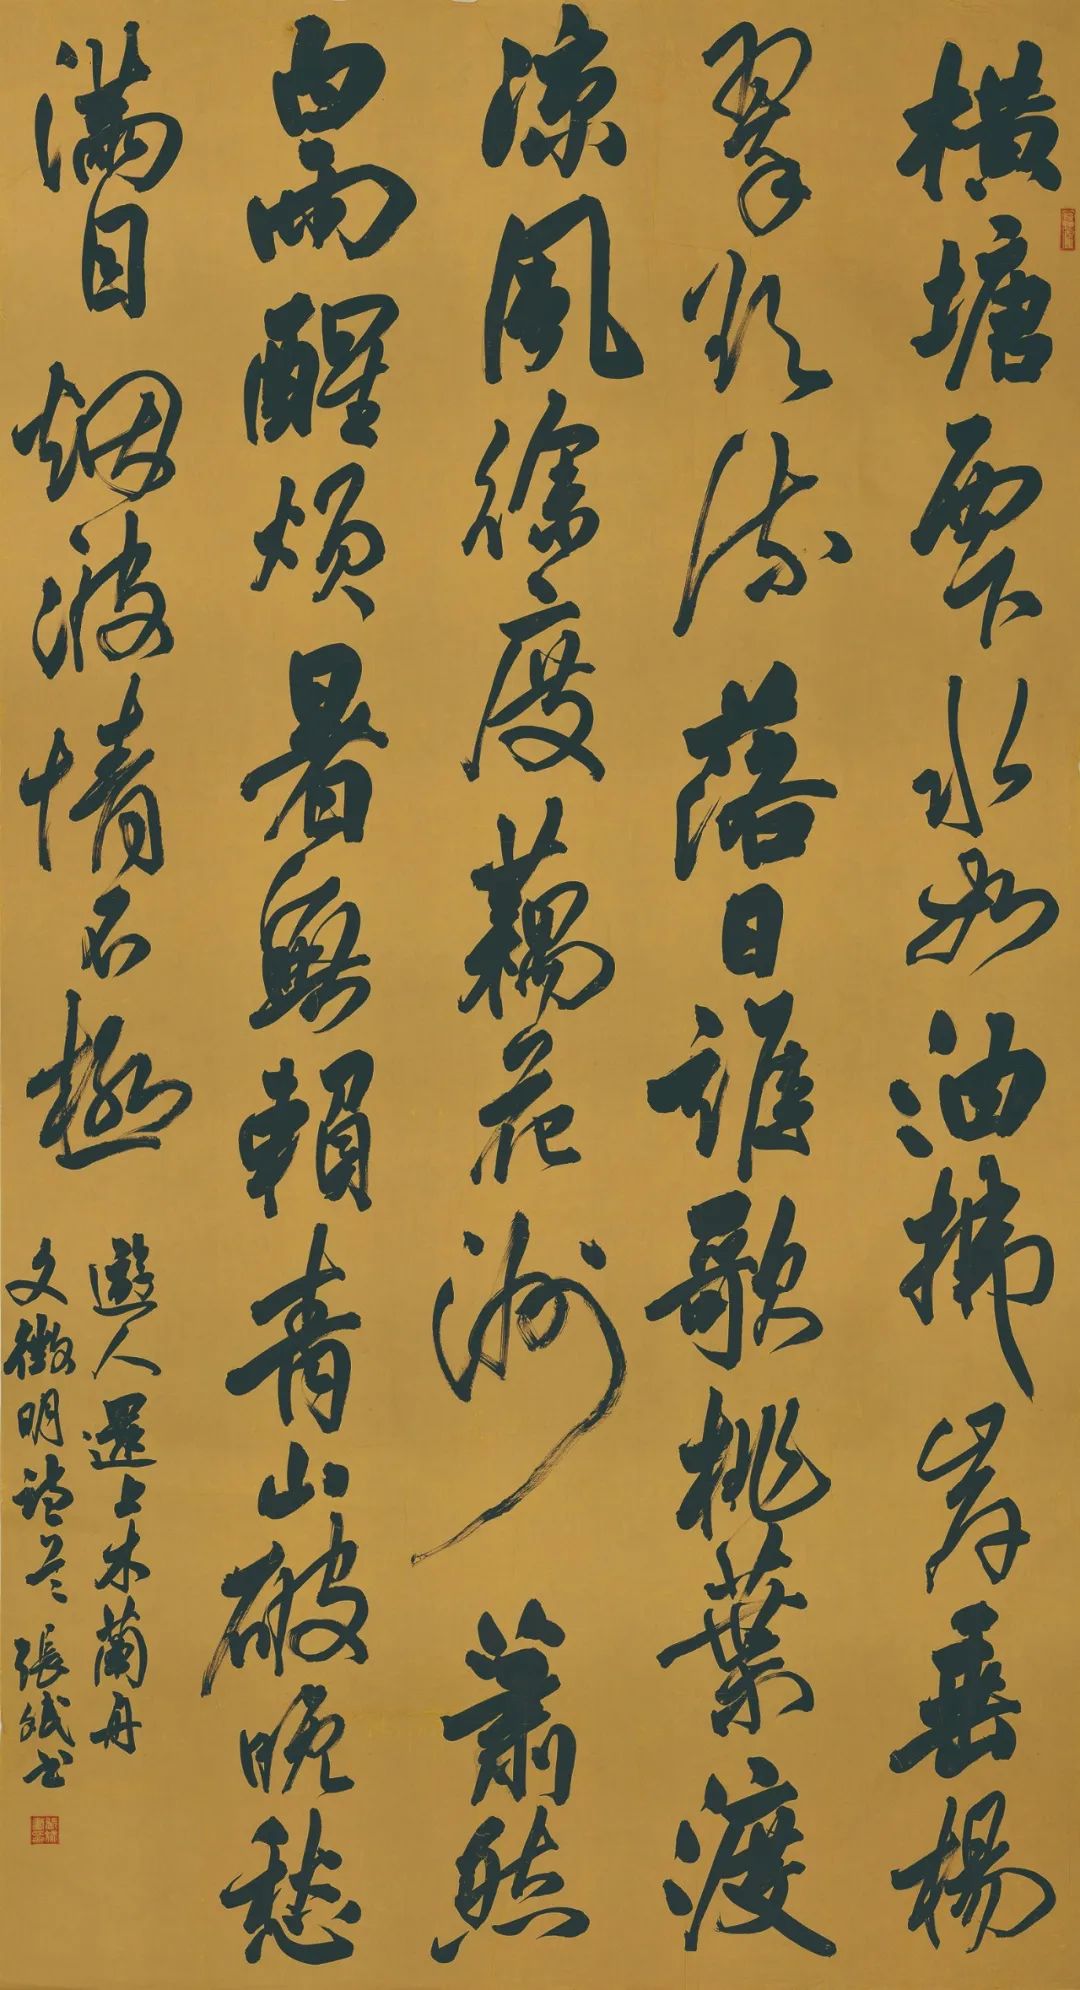 橫塘西下水如油拂岸垂楊
翠欲流落日誰歌桃葉渡
凉風徐度藕花洲蕭然
白雨醒煩暑無賴青山破晚愁
滿目烟波情不極
遊人還上木蘭舟
文徵明詩 張斌书